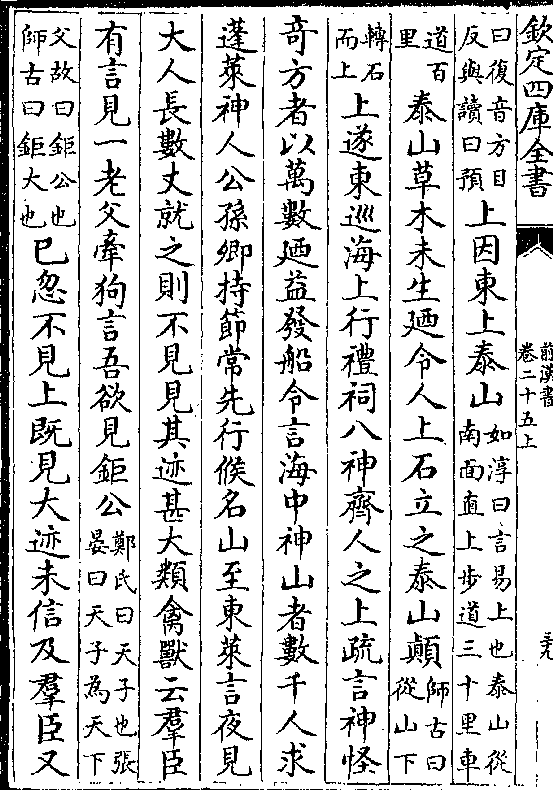 欽定四庫全書
前漢書
卷二十五上
曰復音方目反與讀曰預上因東上泰山如淳曰言易上也泰山從南面直上步道三十里車
道百里泰山草木未生廼令人上石立之泰山顛師古曰從山下
轉石而上上遂東巡海上行禮祠八神齊人之上疏言神怪
奇方者以萬數廼益發船令言海中神山者數千人求
蓬萊神人公孫卿持節常先行候名山至東萊言夜見
大人長數丈就之則不見見其迹甚大類禽獸云羣臣
有言見一老父牽狗言吾欲見鉅公鄭氏曰天子也張晏曰天子為天下
父故曰鉅公也師古曰鉅大也已忽不見上既見大迹未信及羣臣又